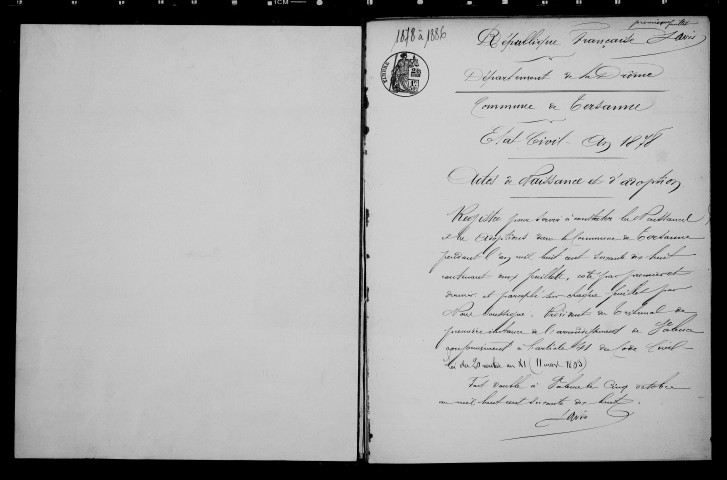 premier feuillet
Davis
1878 à 1886
République Française
Département de la Drôme
Commune de Tersanne
Etat-Civil - An 1878
Actes de Naissance et d'adoption
Registre pour servir à constater les Naissances
et les adoptions dans la Commune de Tersanne
pendant l'an mil huit cent soixante dix huit
contenant onze feuillets, coté par premier et
dernier et paraphé sur chaque feuillet par
Nous soussigné, Président du Tribunal de
première instance de l'arrondissement de Valence
conformément à l'article 41 du Code Civil -
Loi du 20 ventôse an XI (11 mars 1803)
Fait double à Valence le Cinq octobre
mil huit cent soixante dix huit.
Davis